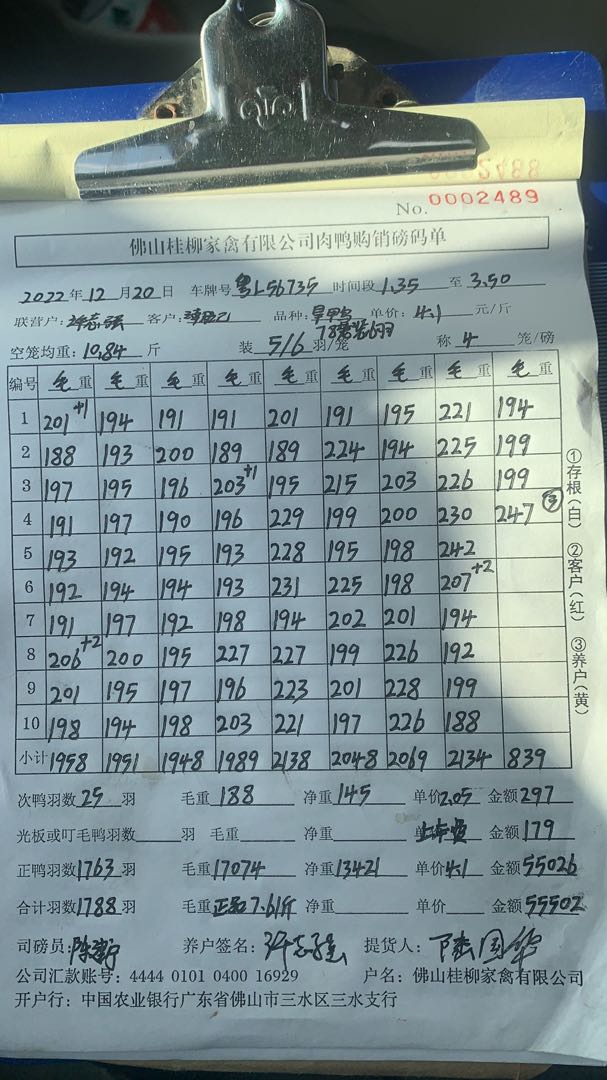 No. 0002489
佛山桂柳家禽有限公司肉鸭购销磅码单
2022年12月20日 车牌号 粤L56735 时间段 1.35 至 3.50
联营户: 许志强 客户: 品种: 旱鸭 单价: 4.1 元/斤
空笼均重: 10.84 斤 装 5/6 羽/笼 称 4 笼/磅
编号 毛重 毛重 毛重 毛重 毛重 毛重 毛重 毛重 毛重
1 201+1 194 191 191 201 191 195 221 194
2 188 193 200 189 189 224 194 225 199
3 197 195 196 203+1 195 215 203 226 199
4 191 197 190 196 229 199 200 230 247 ③
5 193 192 195 193 228 195 198 242
6 192 194 194 193 231 225 198 207+2
7 191 197 192 198 194 202 201 194
8 206+2 200 195 227 227 199 226 192
9 201 195 197 196 223 201 228 199
10 198 194 198 203 221 197 226 188
小计 1958 1951 1948 1989 2138 2048 2069 2134 839
①存根(白) ②客户(红) ③养户(黄)
次鸭羽数 25 羽 毛重 188 净重 145 单价 2.05 金额 297
光板或叮毛鸭羽数 羽 毛重 净重 金额 179
正鸭羽数 1763 羽 毛重 17074 净重 13421 单价 4.1 金额 55026
合计羽数 1788 羽 毛重 正品7.61斤 净重 单价 金额 55502
司磅员: 养户签名: 许志强 提货人: 陈国华
公司汇款账号: 4444 0101 0400 16929 户名: 佛山桂柳家禽有限公司
开户行: 中国农业银行广东省佛山市三水区三水支行